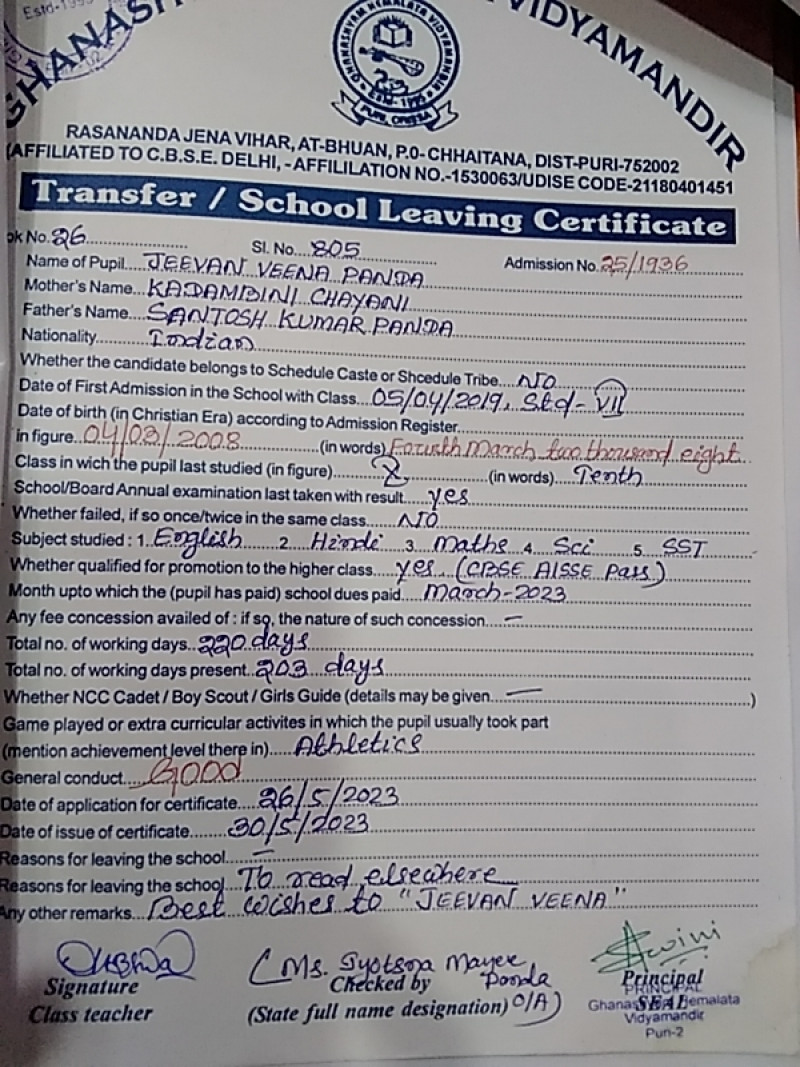 Estd-1995
GHANASHYAM HEMALATA VIDYAMANDIR
ESTD-1995
PURI, ORISSA
GHANASH VIDYAMANDIR
RASANANDA JENA VIHAR, AT-BHUAN, P.0- CHHAITANA, DIST-PURI-752002
(AFFILIATED TO C.B.S.E. DELHI, -AFFILILATION NO.-1530063/UDISE CODE-21180401451
Transfer / School Leaving Certificate
ok No. 26 Sl. No. 805 Admission No. 25/1936
Name of Pupil JEEVAN VEENA PANDA
Mother's Name KADAMBINI CHAYANI
Father's Name SANTOSH KUMAR PANDA
Nationality Indian
Whether the candidate belongs to Schedule Caste or Shcedule Tribe NO
Date of First Admission in the School with Class 05/04/2019, Std-VII
Date of birth (in Christian Era) according to Admission Register
in figure 04/03/2008 (in words) Fourth March two thousand eight
Class in wich the pupil last studied (in figure) X (in words) Tenth
School/Board Annual examination last taken with result yes
Whether failed, if so once/twice in the same class NO
Subject studied : 1. English 2. Hindi 3. Maths 4. Sci 5. SST
Whether qualified for promotion to the higher class yes (CBSE AISSE Pass)
Month upto which the (pupil has paid) school dues paid March-2023
Any fee concession availed of : if so, the nature of such concession —
Total no. of working days 220 days
Total no. of working days present 203 days
Whether NCC Cadet / Boy Scout / Girls Guide (details may be given — )
Game played or extra curricular activites in which the pupil usually took part
(mention achievement level there in) Athletics
General conduct GOOD
Date of application for certificate 26/5/2023
Date of issue of certificate 30/5/2023
Reasons for leaving the school —
Reasons for leaving the school To read elsewhere
Any other remarks Best wishes to "JEEVAN VEENA"
(Ms. Jyotsna Mayee
Panda
Signature Checked by Principal
PRINCIPAL
Class teacher (State full name designation) O/A) SEAL
Ghanashyam Hemalata
Vidyamandir
Puri-2